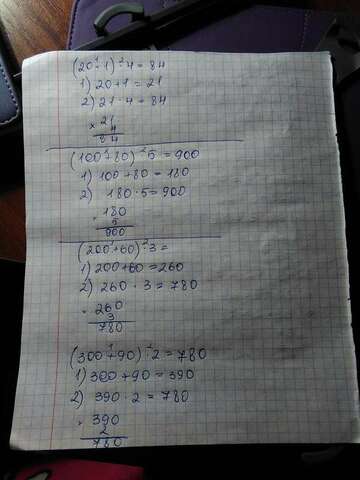 (20+1)·4=84
1) 20+1=21
2) 21·4=84
× 21
4
84
(100+80)·5=900
1) 100+80=180
2) 180·5=900
· 180
5
900
(200+60)·3=
1) 200+60=260
2) 260·3=780
· 260
3
780
(300+90)·2=780
1) 300+90=390
2) 390·2=780
· 390
2
780